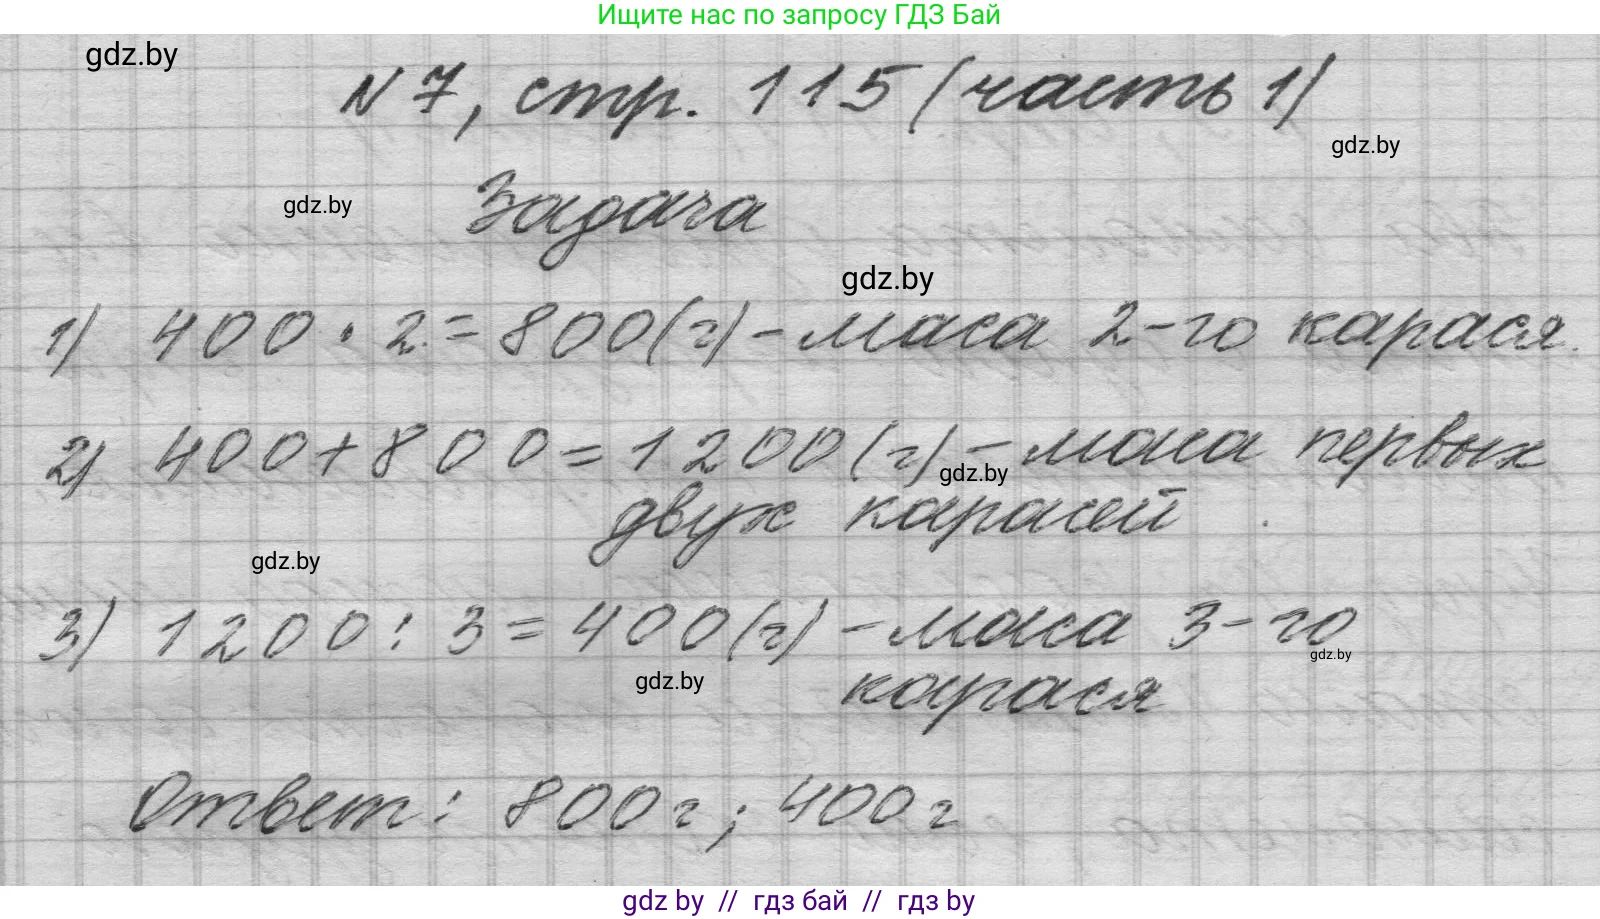 Ищите нас по запросу ГДЗ Бай
gdz.by
№7, стр. 115 (часть 1)
gdz.by
gdz.by
Задача
gdz.by
1) 400 · 2 = 800 (г) - маса 2-го карася.
2) 400 + 800 = 1200 (г) - маса первых
gdz.by
двух карасей.
gdz.by
3) 1200 : 3 = 400 (г) - маса 3-го
gdz.by
gdz.by
карася
Ответ: 800 г; 400 г
gdz by // гдз бай // гдз by